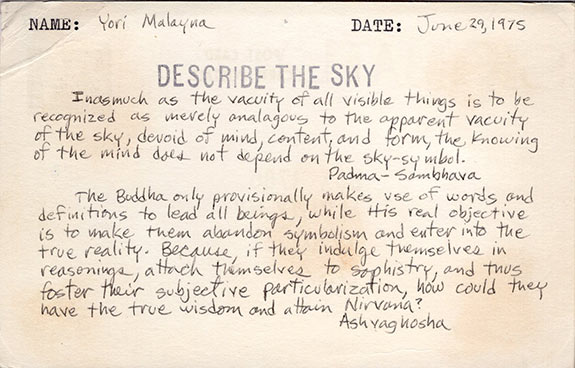 NAME: Yori Malayna DATE: June 29, 1975
DESCRIBE THE SKY
Inasmuch as the vacuity of all visible things is to be
recognized as merely analagous to the apparent vacuity
of the sky, devoid of mind, content, and form, the knowing
of the mind does not depend on the sky-symbol.
Padma-Sambhava
The Buddha only provisionally makes use of words and
definitions to lead all beings, while His real objective
is to make them abandon symbolism and enter into the
true reality. Because, if they indulge themselves in
reasonings, attach themselves to sophistry, and thus
foster their subjective particularization, how could they
have the true wisdom and attain Nirvana?
Ashvaghosha